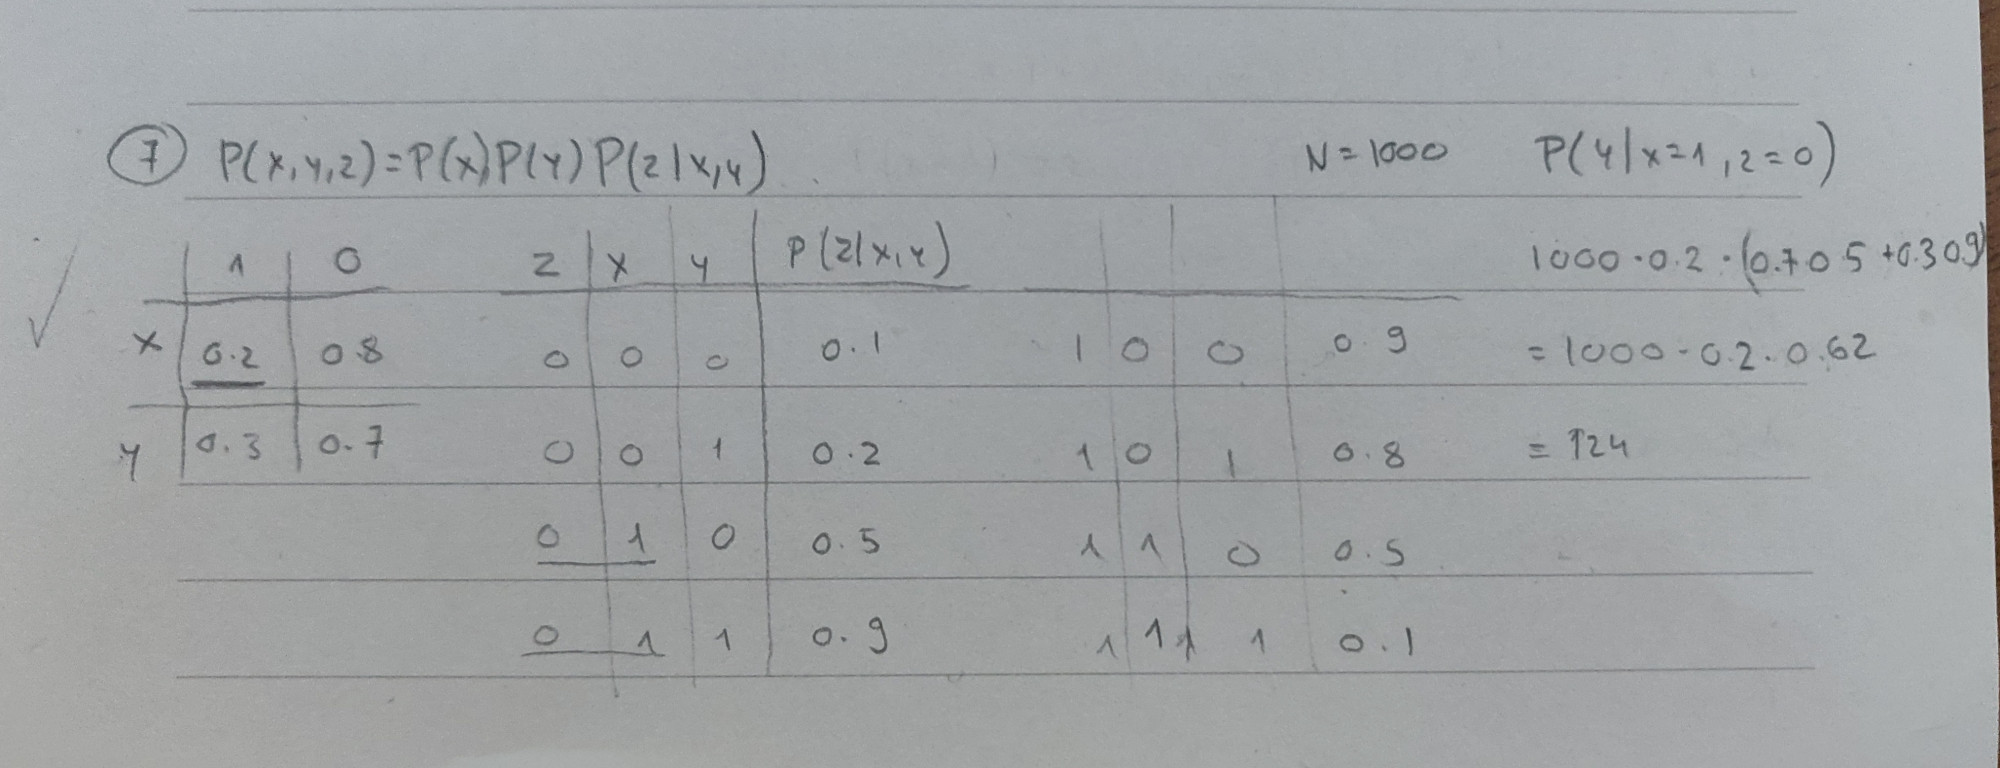 7 P(x,y,z)=P(x)P(y)P(z|x,y) N=1000 P(y|x=1,z=0)
1 0 z x y P(z|x,y) 1000·0.2·(0.7 0.5+0.3 0.9)
x 0.2 0.8 0 0 0 0.1 1 0 0 0.9 =1000·0.2·0.62
y 0.3 0.7 0 0 1 0.2 1 0 1 0.8 =124
0 1 0 0.5 1 1 0 0.5
0 1 1 0.9 1 1 1 0.1